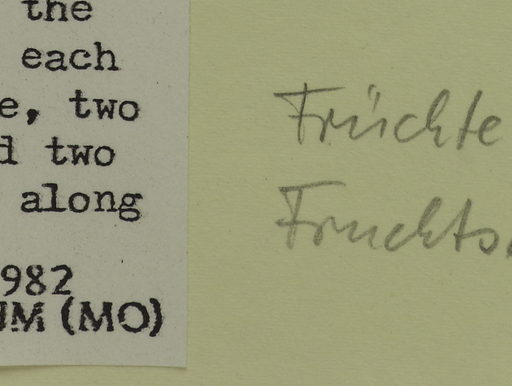 the
each
e, two
d two
along
982
UM (MO)
Früchte
Fruchts